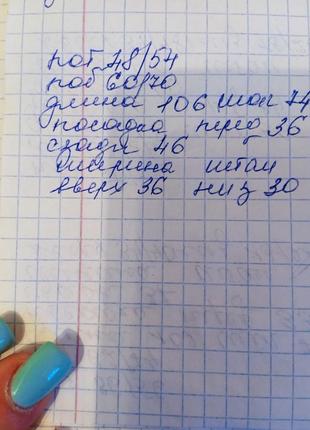 пот 48/54
поб 60/70
длина 106 шаг 74
посадка перед 36
сзади 46
ширина штан
вверх 36 низ 30